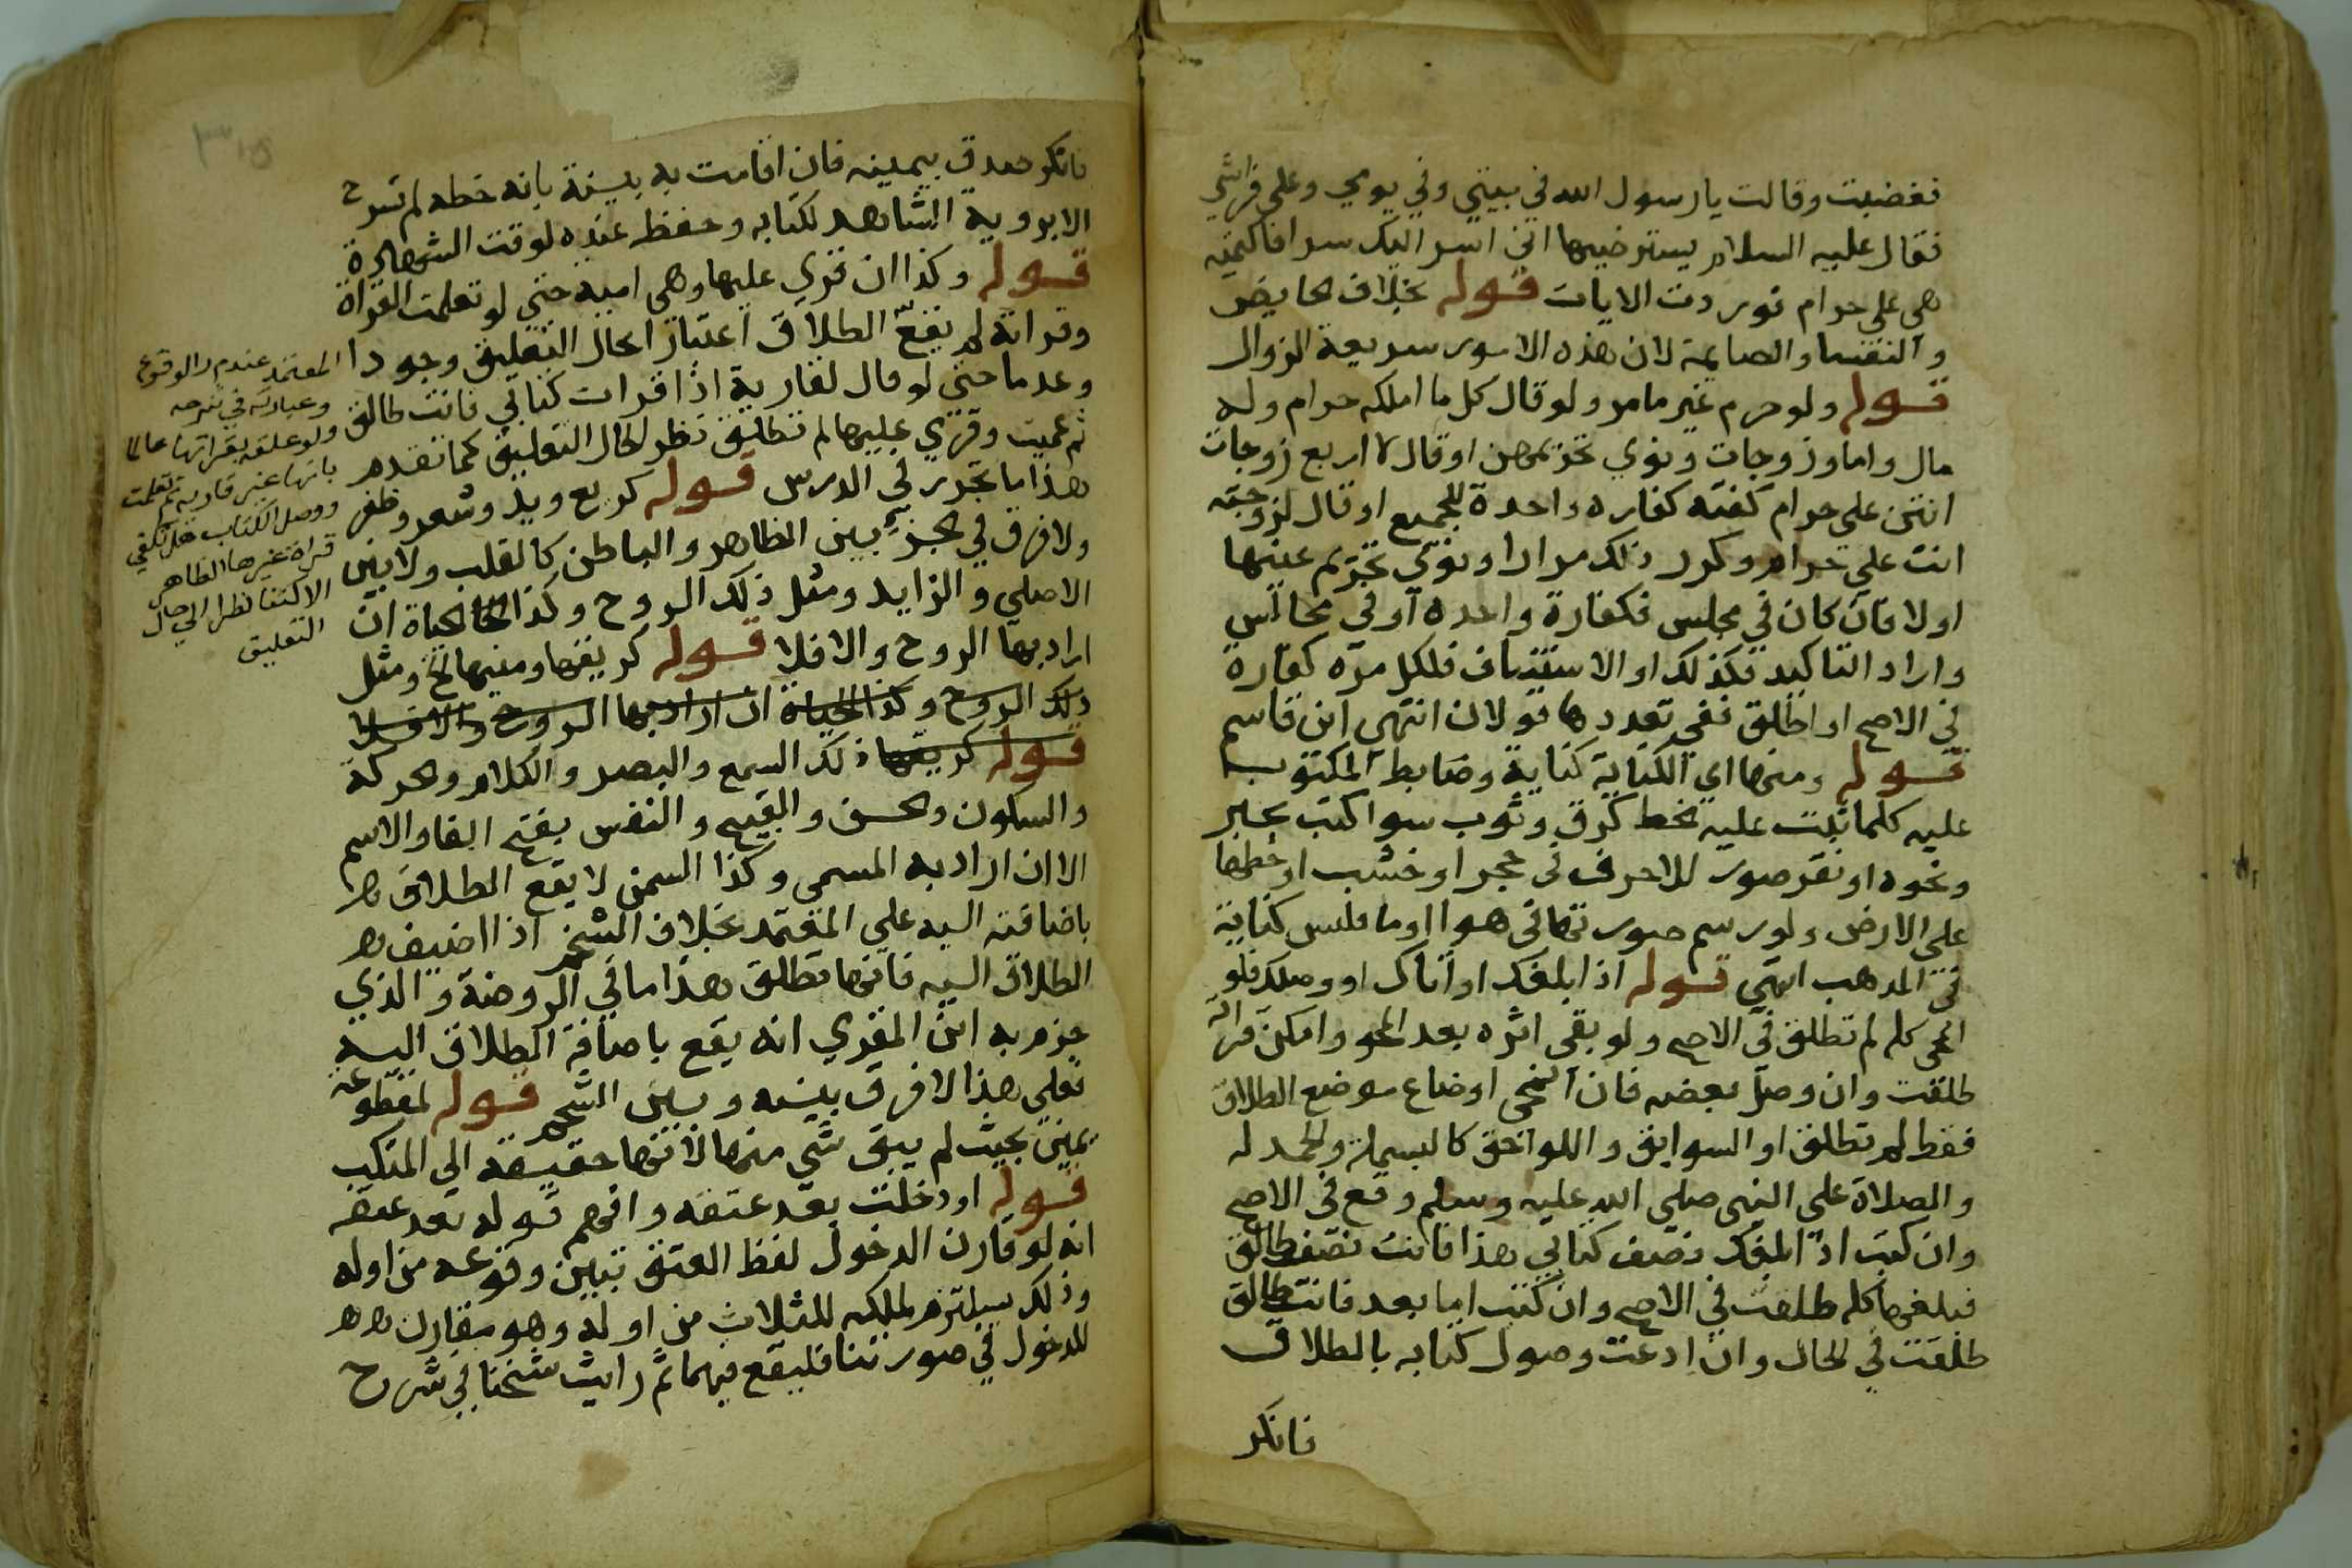 فغضبت وقالت يا رسول الله في بيتي وفي يومي وعلى فراشي
فقال عليه السلام يسترضيها اني اسر اليك سرا فاكتميه
هي علي حرام فوردت الايات قوله بخلاف الحايض
والنفسا والصايمة لان هذه الامور سريعة الزوال
قوله ولو حرم غير ما مر ولو قال كل ما املكه حرام وله
مال واما وزوجات ونوي تحريمهن او قال لاربع زوجات
انتن علي حرام كفته كفاره واحدة للجميع او قال لزوجته
انت علي حرام وكرر ذلك مرارا ونوي تحريم عينها
اولا فان كان في مجلس فكفارة واحده او في مجالس
واراد التاكيد فكذلك او الاستيناف فلكل مرة كفاره
في الاصح او اطلق ففي تعددها قولان انتهى ابن قاسم
قوله ومنها اي الكناية كتابة وضابط المكتوب
عليه كلما ثبت عليه الخط كرق وثوب سوا كتب بحبر
ونحوه او نقر صور للاحرف في حجر او خشب او خطها
على الارض ولو رسم صورتها في هوا او ما فليس كناية
في المذهب انتهى قوله اذا بلغك او اتاك او وصلك فلو
انمحى كله لم تطلق في الاصح ولو بقى اثره بعد المحو وامكن قراته
طلقت وان وصل بعضه فان انمحى او ضاع موضع الطلاق
فقط لم تطلق او السوابق واللواحق كالبسملة والحمد له
والصلاة على النبي صلى الله عليه وسلم وقع في الاصح
وان كتب اذا بلغك نصف كتابي هذا فانت طالق
فبلغها كله طلقت في الاصح وان كتب اما بعد فانت طالق
طلقت في الحال وان ادعت وصول كتابه بالطلاق
فانكر
فانكر صدق بيمينه فان اقامت به بينة بانه خطه لم تسمع
الا بروية الشاهد لكتابه وحفظه عنده لوقت الشهادة
قوله وكذا ان قري عليها وهي امية حتى لو تعلمت القراة
وقراته لم يقع الطلاق اعتبارا بحال التعليق وجودا
وعدما حتى لو قال لقارية اذا قرات كتابي فانت طالق
ثم عميت وقري عليها لم تطلق نظر لحال التعليق كما تقدم
هذا ما تحرر في الدرس قوله كربع ويد وشعر وظفر
ولا فرق في الجزء بين الظاهر والباطن كالقلب ولا بين
الاصلي والزايد ومثل ذلك الروح وكذا الحياة ان
اراد بها الروح والا فلا قوله كريقها ومنيها الخ ومثل
ذلك الروح وكذا الحياة ان اراد بها الروح والا فلا
قوله كريقها ذلك السمع والبصر والكلام والحركة
والسكون والحسن والقبيح والنفس بفتح الفا والاسم
الا ان اراد به المسمى وكذا السمن لا يقع الطلاق
باضافته اليه على المعتمد بخلاف الشحم اذا اضيف
الطلاق اليه فانها تطلق هذا ما في الروضة والذي
جزم به ابن المقري انه يقع باضافة الطلاق اليه
فعلى هذا لا فرق بينه وبين الشحم قوله لمقطوعة
يمين بحيث لم يبق شي منها لانها حقيقة الى المنكب
قوله او دخلت بعد عتقه وافهم قوله بعد عتقه
انه لو قارن الدخول لفظ العتق تبين وقوعه من اوله
وذلك يستلزم لملكه للثلاث من اوله وهو مقارن
للدخول في صورتنا فليقع فيهما ثم رايت شيخنا في شرح
المعتمد عندم ر الوقوع
وعبارته في شرحه
ولو علقه بقراتها عالما
بانها غير قارية ثم تعلمت
ووصل الكتاب هل تكفي
قراة غيرها الظاهر
الاكتفا نظرا الي حال
التعليق
٣١٥